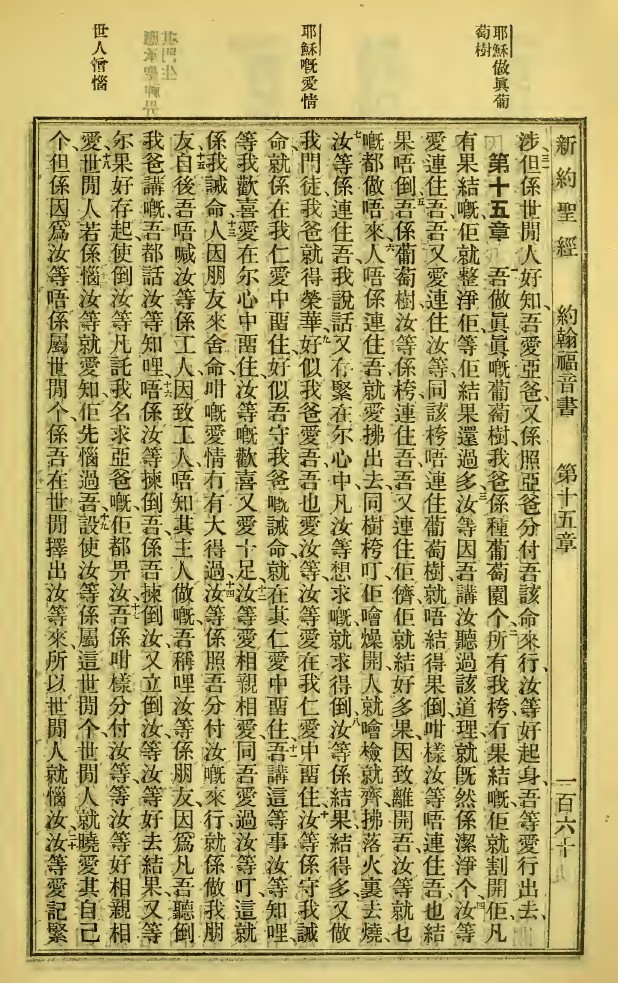 耶穌做眞葡
萄樹
耶穌嘅愛情
世人憎惱
新約聖經 約翰福音書 第十五章 一百六十
三
涉但係世閒人好知吾愛亞爸又係照亞爸分付吾該命來行汝等好起身吾等愛行出去
第十五章 一吾做眞眞嘅葡萄樹我爸係種葡萄園个二所有我桍冇果結嘅佢就割開佢凡
有果結嘅佢就整淨佢等佢結果還過多三汝等因吾講汝聽過該道理就旣然係潔淨个四汝等
愛連住吾吾又愛連住汝等同該桍唔連住葡萄樹就唔結得果倒咁樣汝等唔連住吾也結
果唔倒五吾係葡萄樹汝等係桍連住吾吾又連住佢儕佢就結好多果因致離開吾汝等就乜
嘅都做唔來六人唔係連住吾就愛拂出去同樹桍叮佢噲燥開人就噲檢就齊拂落火裏去燒
七汝等係連住吾我說話又存緊在尔心中凡汝等想求嘅就求得倒八汝等係結果結得多又做
我門徒我爸就得榮華九好似我爸愛吾吾也愛汝等汝等愛在我仁愛中畱住十汝等係守我誡
命就係在我仁愛中畱住好似吾守我爸嘅誡命就在其仁愛中畱住十一吾講這等事汝等知哩
等我歡喜愛在尔心中畱住汝等嘅歡喜又愛十足十二汝等愛相親相愛同吾愛過汝等叮這就
係我誡命十三人因朋友來舍命咁嘅愛情冇有大得過十四汝等係照吾分付汝嘅來行就係做我朋
友十五自後吾唔喊汝等係工人因致工人唔知其主人做嘅吾稱哩汝等係朋友因爲凡吾聽倒
我爸講嘅吾都話汝等知哩十六唔係汝等揀倒吾係吾揀倒汝又立倒汝等汝等好去結果又等
尔果好存起使倒汝等凡託我名求亞爸嘅佢都畀汝十七吾係咁樣分付汝等等汝等好相親相
愛十八世閒人若係惱汝等就愛知佢先惱過吾十九設使汝等係屬這世閒个世閒人就曉愛其自己
个但係因爲汝等唔係屬世閒个係吾在世閒擇出汝等來所以世閒人就惱汝二十汝等愛記緊